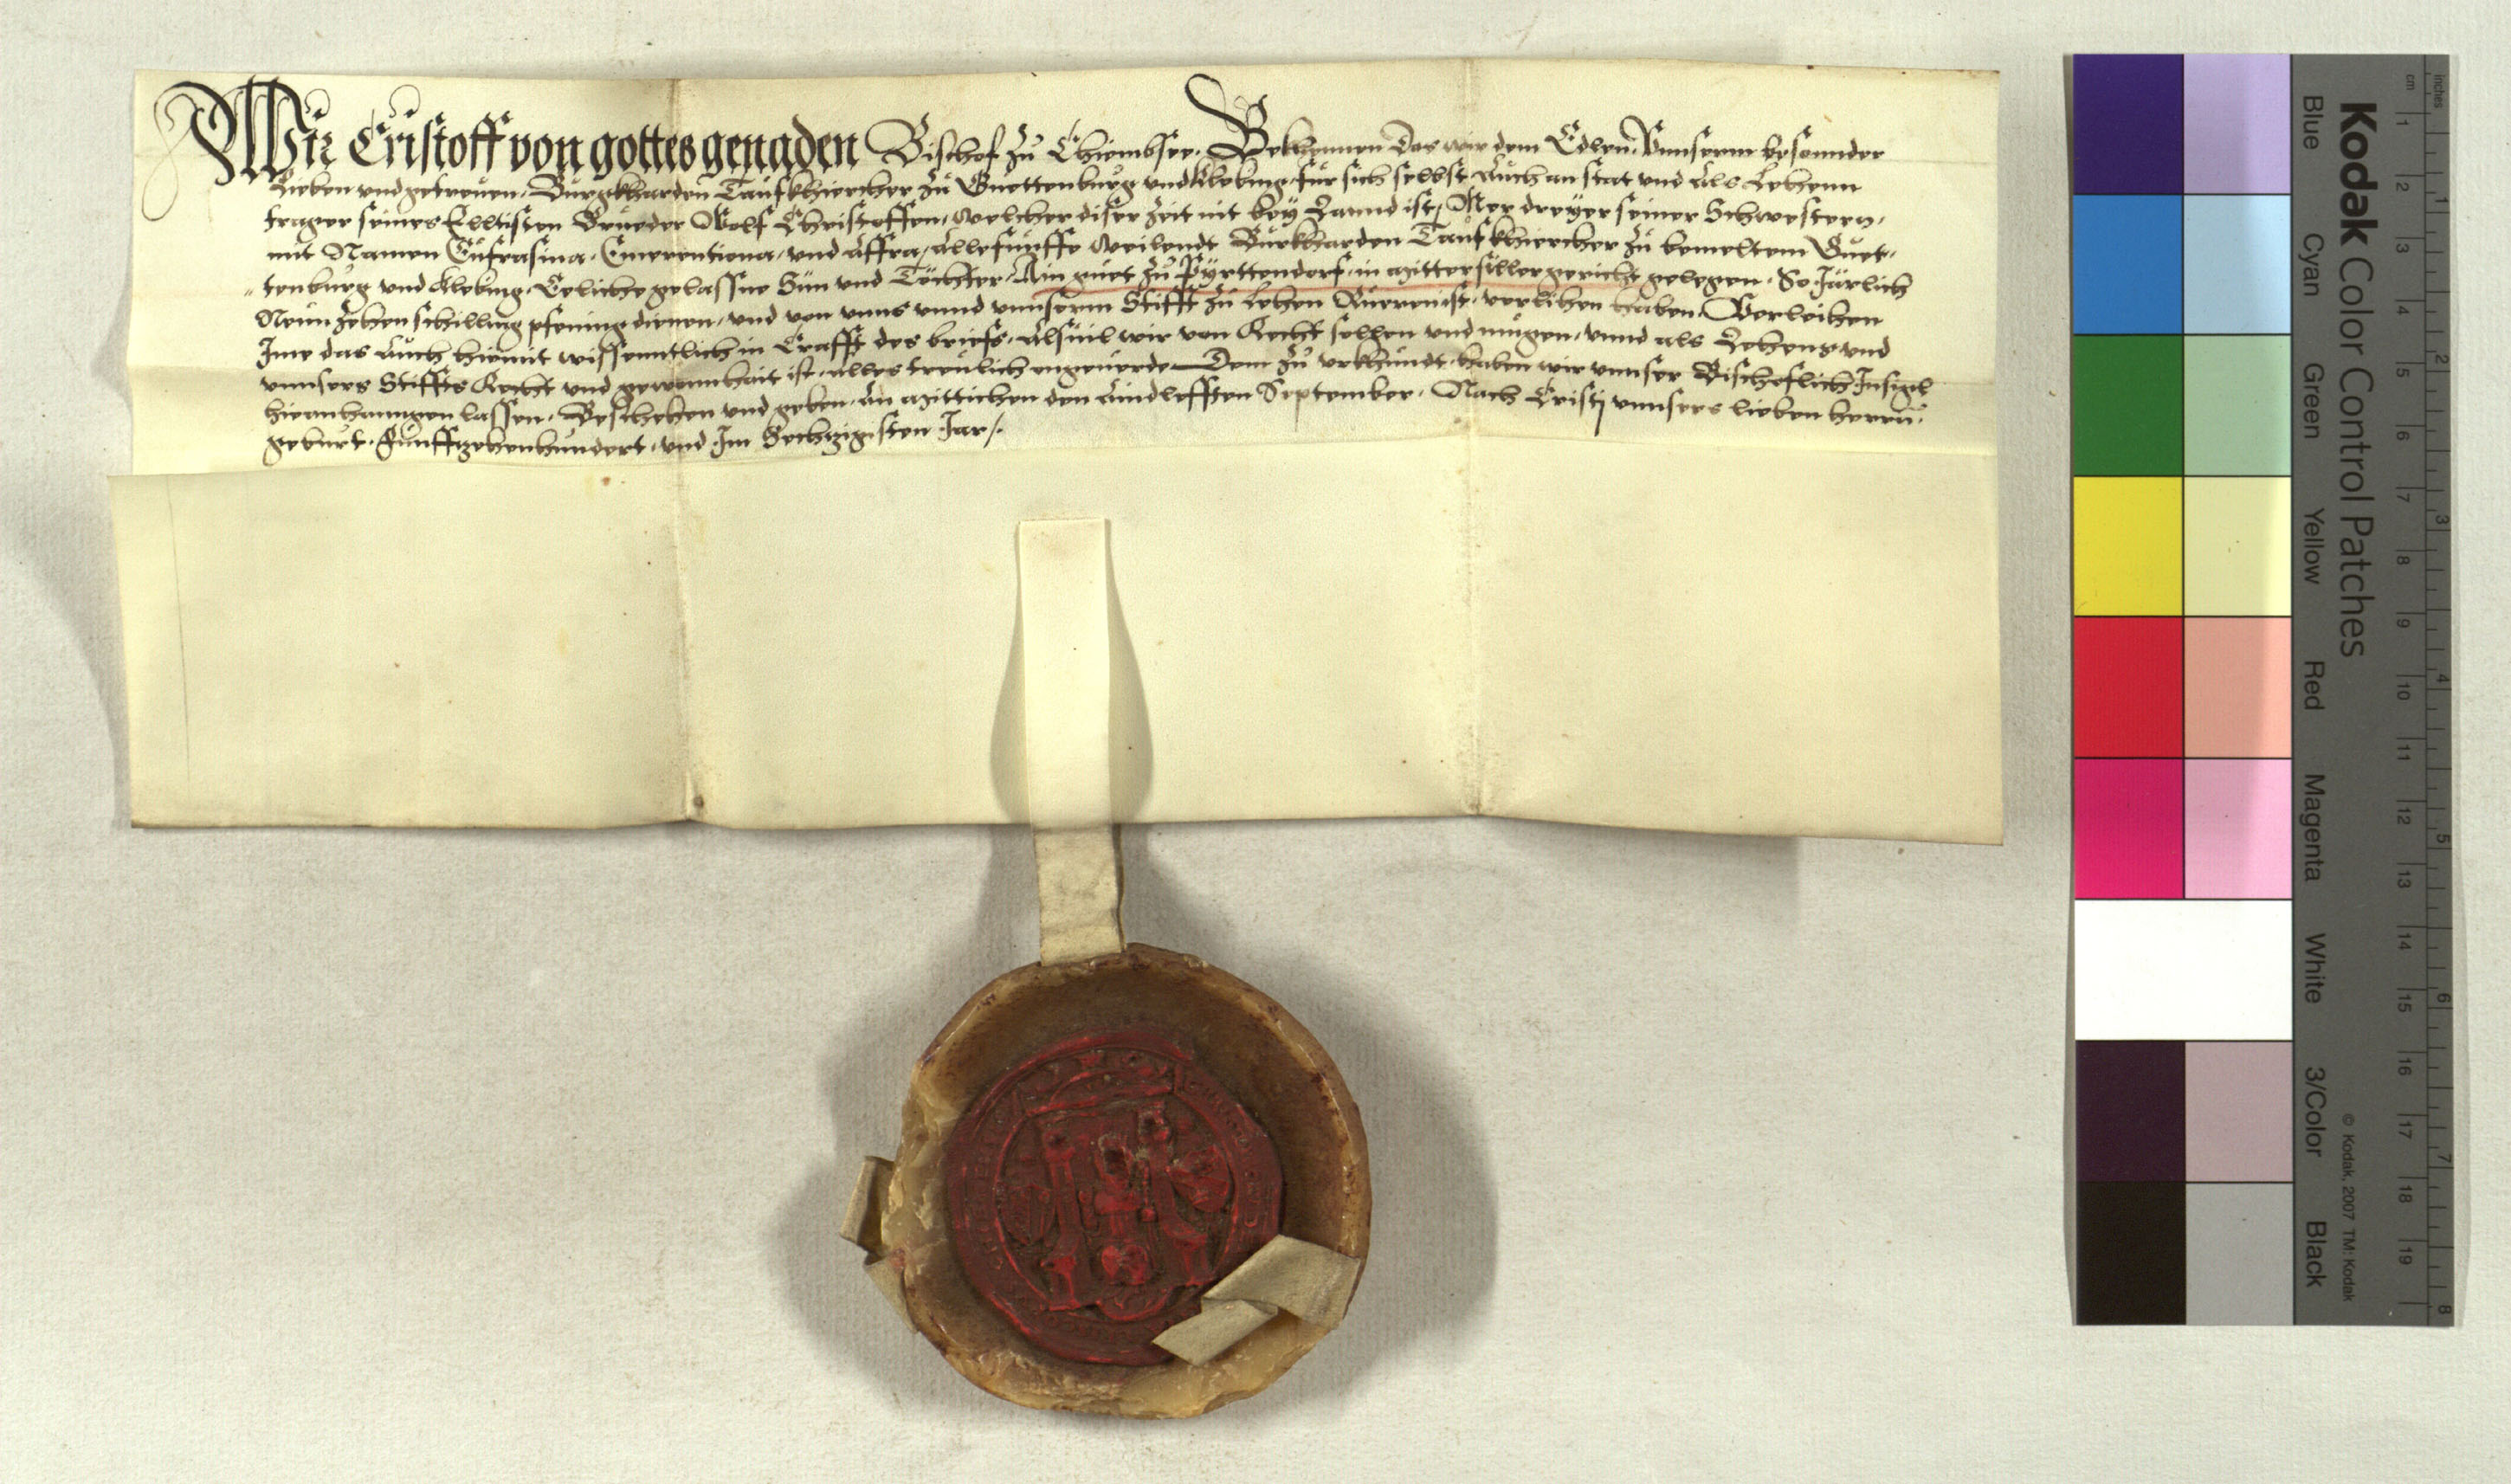 Wir Cristoff von gottes genaden Bischof zů Chiembsee. Bekhennen das wir dem Edlen, Vnnserm besonnder
Lieben vnd getreuen. Burgkharden Taufkhiercher zů Guettenburg vnd Klebing, für sich selbst auch an stat vnd als Lehenn
trager seines Elltisten Brueder Wolf Christoffen, welcher diser zeit nit bey Lannd ist, Mer dreyer seiner Schwestern,
mit Namen Eufrasina, Emerentiana, vnd Affra, alle fünffe Weilendt Burkharden Taufkhiercher zů bemeltem Guet-
tenburg vnd Klebing, Eeliche gelassne Sün vnd Töchter, Ain guet zů Pyrttendorf, in Mittersiller gericht gelegen. So Järlich
Neun zehen schilling pfening dienen, vnd von vnns vnnd vnnserm Stifft zů Lehen Ruerenn ist, verlihen haben. Verleihen
Ime das auch hiemit wissenntlich in Crafft des briefs, Alsuil wir von Recht sollen vnd mügen, vnnd als Lehens vnd
vnnsers Stiffts Recht vnd gewonnhait ist, alles treulich ongeuerde. Dem zů vrkhundt, haben wir vnnser Bischoflich Insigl
hieranhanngen lassen. Beschehen vnd geben, An Mittichen den aindlefften September, Nach Cristj vnnsers lieben herrn
geburt, Fünffzehenhundert, vnd Im Sechzigisten Jar/.
Kodak Color Control Patches
© Kodak, 2007 TM: Kodak
Blue Cyan Green Yellow Red Magenta White 3/Color Black
cm 1 2 3 4 5 6 7 8 9 10 11 12 13 14 15 16 17 18 19
inches 1 2 3 4 5 6 7 8